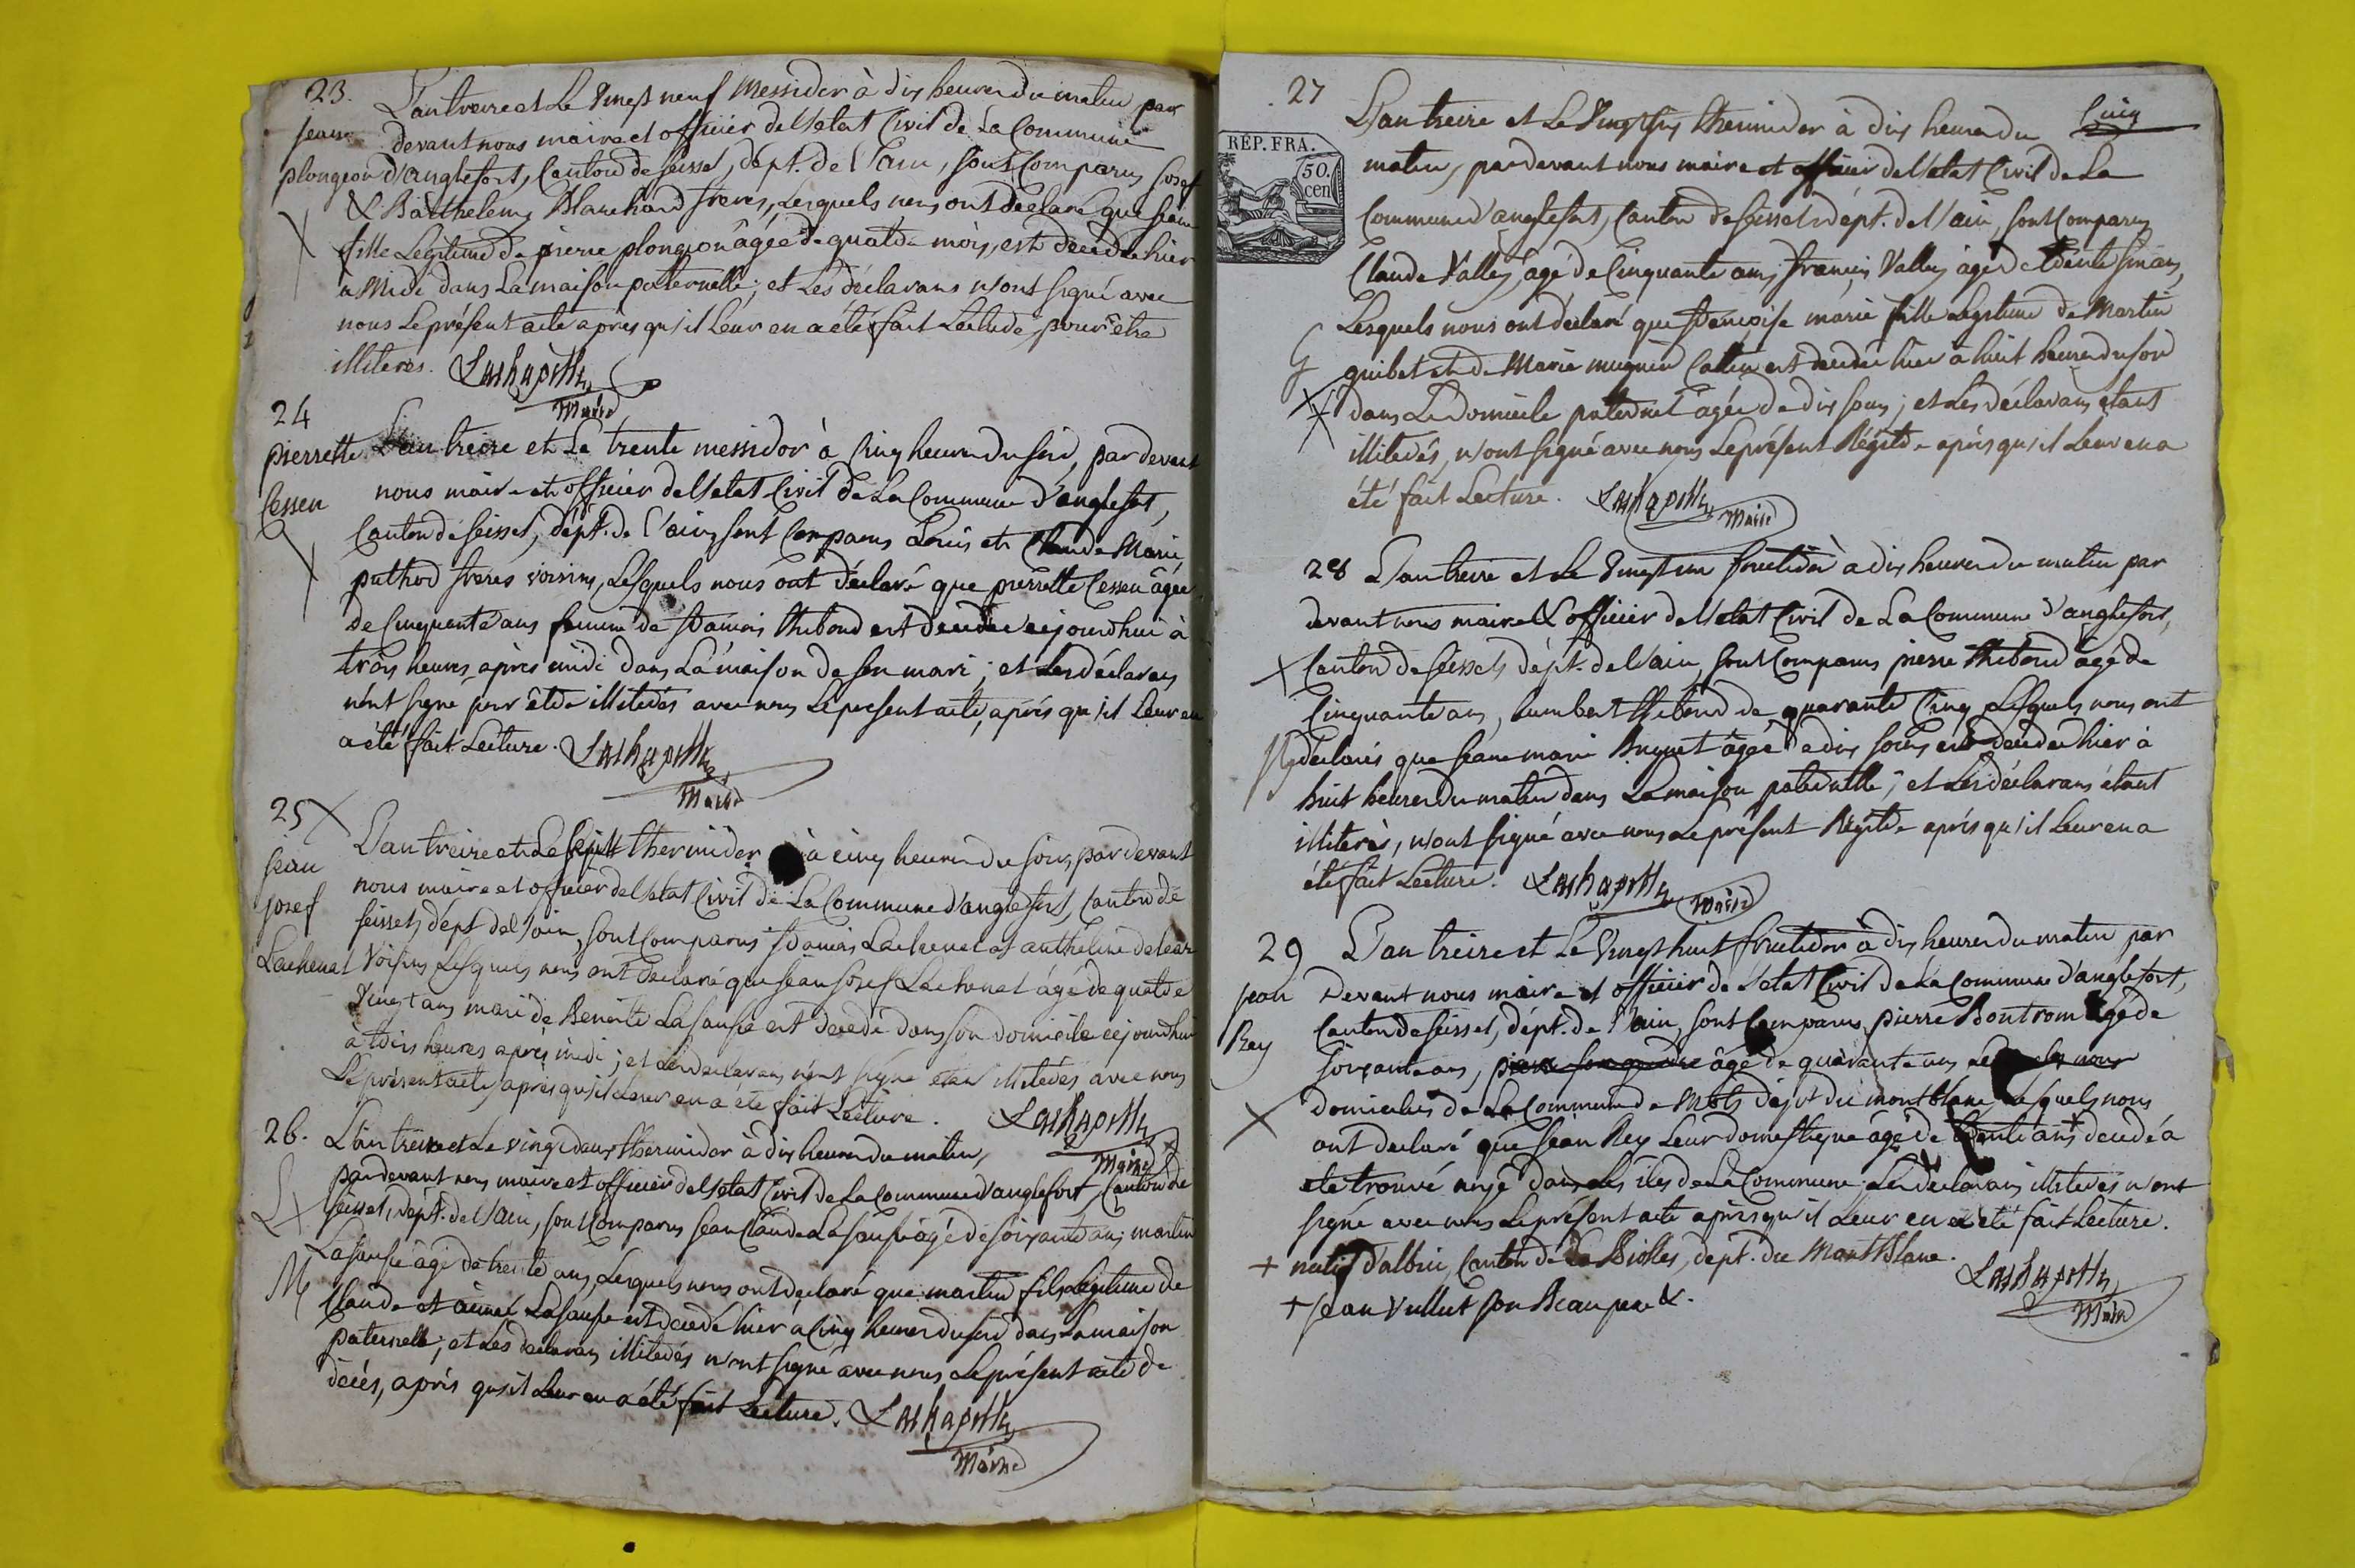 23.
jeane
plongeon
L'an treize et le vingt neuf messidor à dix heures du matin par
devant nous maire et officier de l'etat civil de la Commune
d'anglefort, Canton de seissel, dépt. de l'ain, sont Comparus josef
& Barthelemy Blanchard freres, lesquels nous ont déclaré que jeane
fille legitime de pierre plongeon âgée de quatre mois, est decedée hier
a Midi dans la maison paternelle; et les déclarans n'ont signé avec
nous le présent acte après qu'il leur en a été fait lecture, pour être
illiterés. Lachapelle
Maire
24
pierrette
Cessen
L'an treize et le trente messidor à cinq heures du soir, par devant
nous maire et officier de l'etat civil de la Commune d'anglefort,
Canton de seissel, dépt. de l'ain, sont Comparus Louis et Claude Marie
puthod freres voisins, lesquels nous ont déclaré que pierrette Cessen âgée
de cinquante ans femme de francois thiboud est decedée cejourdhui à
trois heures après midi dans la maison de son mari; et les déclarans
n'ont signé pour être illiterés avec nous le present acte, après qu'il leur en
a été fait lecture. Lachapelle
Maire
25
jean
josef
Lachenal
L'an treize et le sept thermidor à cinq heures du soir, par devant
nous maire et officier de l'etat civil de la Commune d'anglefort, Canton de
seissel, dépt de l'ain, sont Comparus francois Lachenal et anthelme
voisins lesquels nous ont declaré que jean josef Lachenal âgé de quatre
vingt ans mari de Benoite Lasausse est decedé dans son domicile cejourdhui
à trois heures après midi; et les declarans n'ont signé etan illiterés avec nous
le présent acte, après qu'il leur en a été fait lecture. Lachapelle
Maire
26.
L'an treize et le vingt deux thermidor à dix heures du matin,
par devant nous maire et officier de l'etat civil de la Commune d'anglefort Canton de
seissel, dépt. de l'ain, sont Comparus jean Claude Lasausse âgé de soixante ans, martin
Lasausse âgé de trente ans, lesquels nous ont declaré que martin fils legitime de
Claude et aimé Lasausse est decedé hier a cinq heures du soir dans la maison
paternelle; et les declarans illiterés n'ont signé avec nous le présent acte de
décés, après qu'il leur en a été fait lecture. Lachapelle
Maire
27
Cinq
REP. FRA.
50.
cen
L'an treize et le vingt six thermidor à dix heures du
matin, par devant nous maire et officier de l'etat civil de la
Commune d'anglefort, Canton de seissel dépt. de l'ain, sont Comparus
Claude Valley, âgé de cinquante ans, francois Valley âgé de trente six ans,
lesquels nous ont déclaré que francoise marie fille legitime de Martin
guibet et de Marie mugnier est decedée hier à huit heures du soir
dans le domicile paternel âgée de dix jours; et les déclarans étant
illiterés, n'ont signé avec nous le présent Régitre après qu'il leur en a
été fait lecture. Lachapelle
Maire
28
L'an treize et le vingt un fructidor à dix heures du matin par
devant nous maire & officier de l'etat civil de la Commune d'anglefort,
Canton de seissel dépt. de l'ain, sont Comparus pierre thiboud âgé de
cinquante ans, humbert thiboud de quarante cinq lesquels nous ont
declarés que jeane marie Buquet âgée de dix jours est decedée hier à
huit heures du matin dans la maison paternelle; et les déclarans étant
illiterés, n'ont signé avec nous le présent Régitre après qu'il leur en a
été fait lecture. Lachapelle
Maire
29
jean
Rey
L'an treize et le vingt huit fructidor à dix heures du matin par
devant nous maire et officier de l'etat civil de la Commune d'anglefort,
Canton de seissel, dépt. de l'ain, sont Comparus pierre Bontrom âgé de
soixante ans, âgé de quarante ans
domiciliés de la Commune de Mots dépt du montblanc, lesquels nous
ont declaré que jean Rey leur domestique âgé de trente ans + decedé a
été trouvé noyé dans les iles de la Commune; les declarans illiterés n'ont
signé avec nous le présent acte après qu'il leur en a été fait lecture.
+ natif d'albin, Canton de la Biolles, dept. du Mont Blanc. Lachapelle
+ jean Vulliet son Beaupere &. Maire